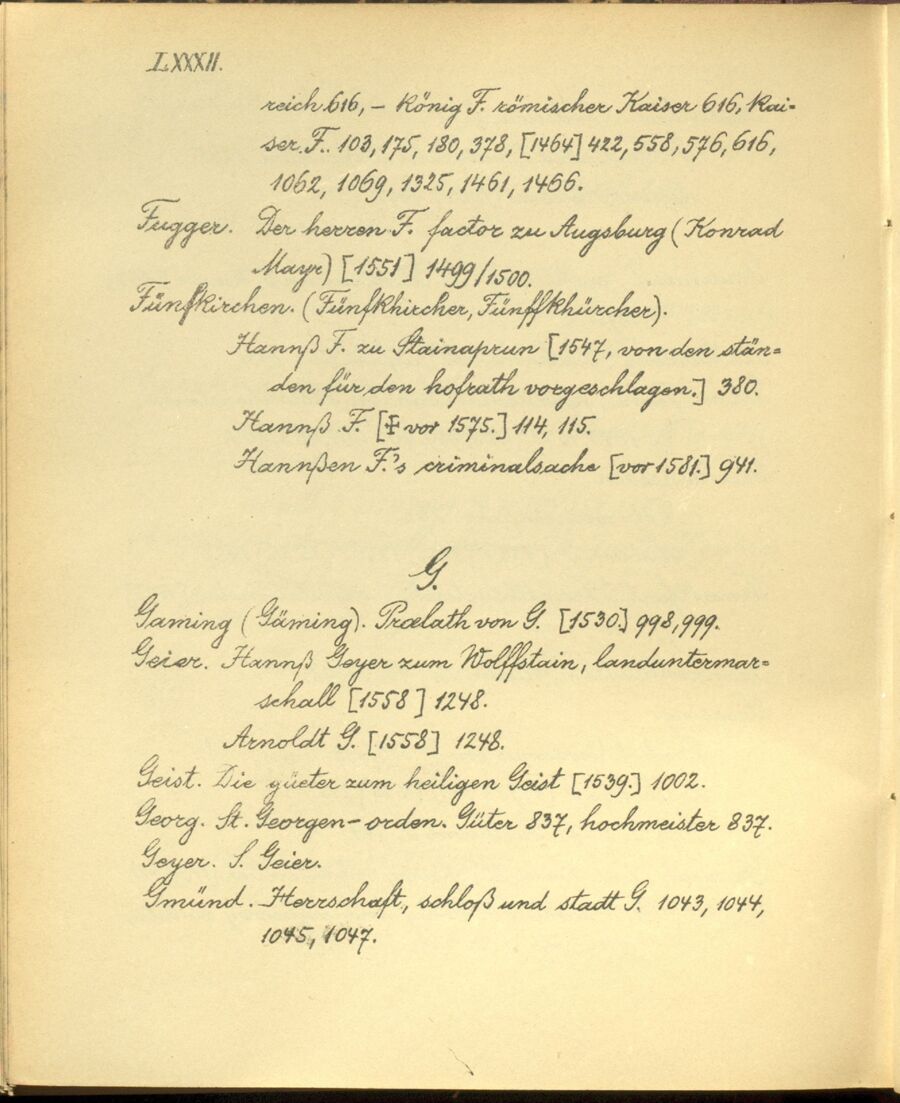 LXXXII.
reich 616, – König F. römischer Kaiser 616, Kai-
ser F.. 103, 175, 180, 378, [1464] 422, 558, 576, 616,
1062, 1069, 1325, 1461, 1466.
Fugger. Der herren F. factor zu Augsburg (Konrad
Mayr) [1551] 1499/1500.
Fünfkirchen. (Fünfkhircher, Fünffkhürcher).
Hannß F. zu Stainaprun [1547, von den stän=
den für den hofrath vorgeschlagen.] 380.
Hannß F. [✠ vor 1575.] 114, 115.
Hannßen F.'s criminalsache [vor 1581.] 941.
G.
Gaming (Gäming). Prælath von G. [1530.] 998, 999.
Geier. Hannß Geyer zum Wolffstain, landuntermar=
schall [1558] 1248.
Arnoldt G. [1558] 1248.
Geist. Die güeter zum heiligen Geist [1539.] 1002.
Georg. St. Georgen-orden. Güter 837, hochmeister 837.
Geyer. S. Geier.
Gmünd. Herrschaft, schloß und stadt G. 1043, 1044,
1045, 1047.